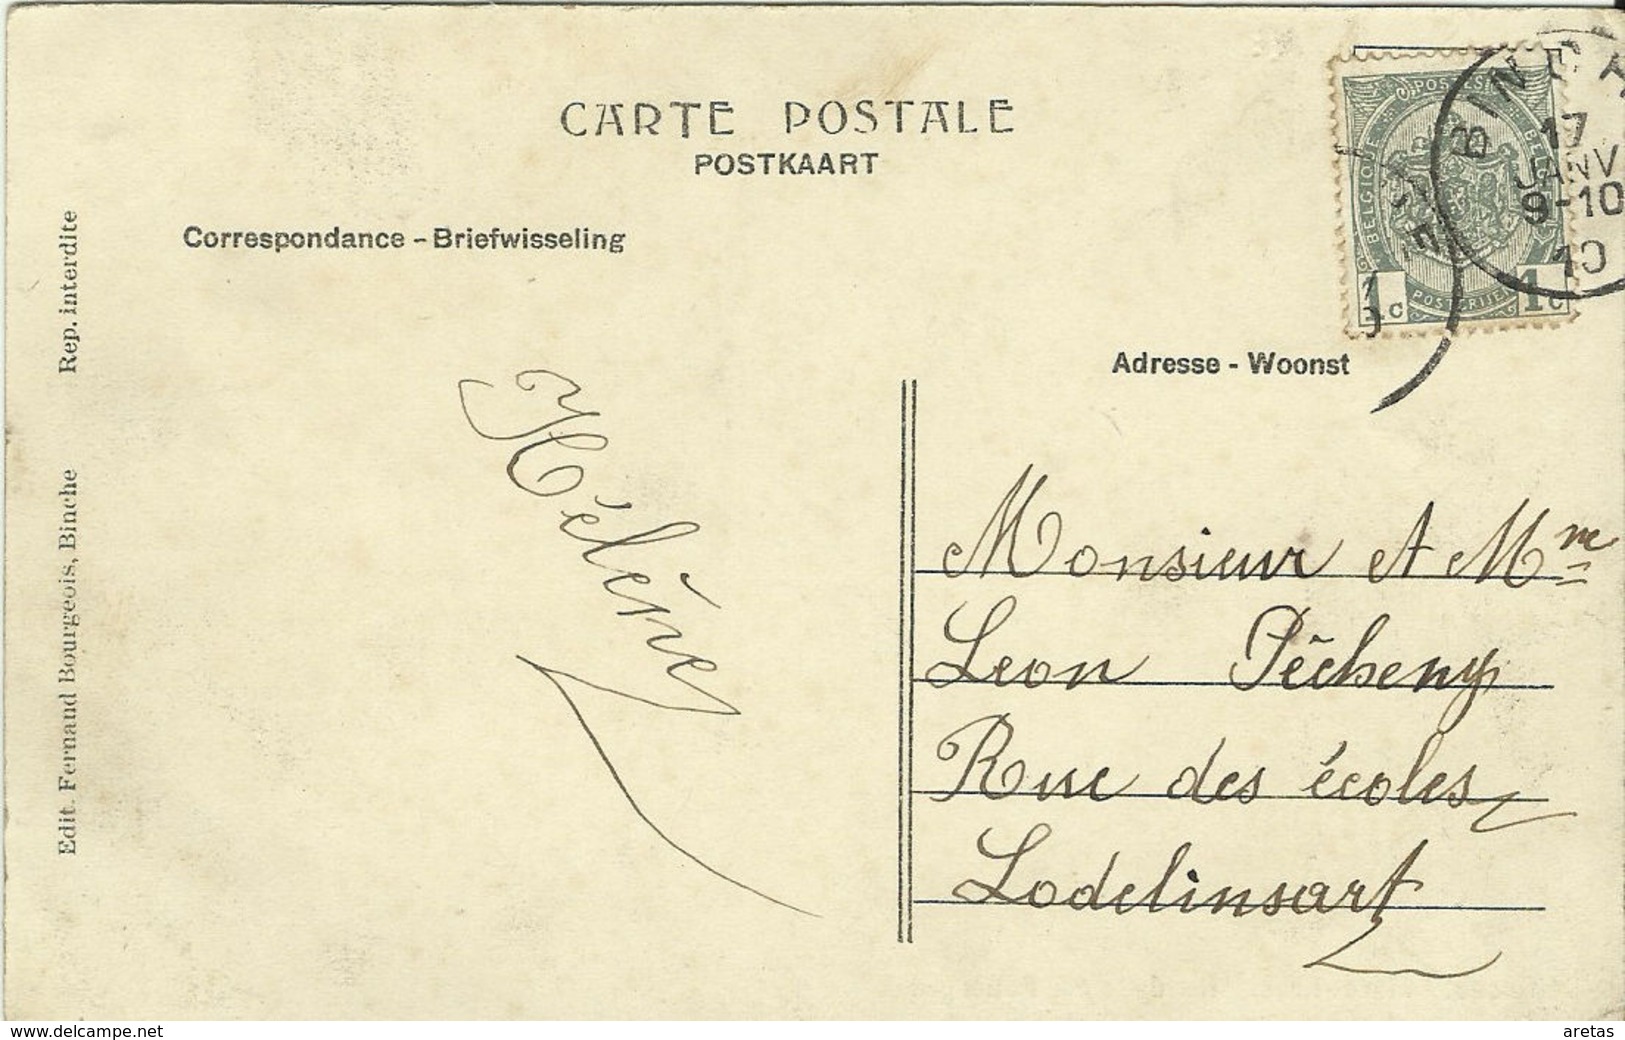 CARTE POSTALE
POSTKAART
Correspondance - Briefwisseling
Adresse - Woonst
Rep. interdite
Edit. Fernand Bourgeois, Binche
POSTES
BELGIQUE
BELGIË
POSTERIJEN
1c
1c
BINCHE
17
JANV
9-10
10
Hélène
Monsieur et Mme
Leon Pècheny
Rue des écoles
Lodelinsart
www.delcampe.net
aretas